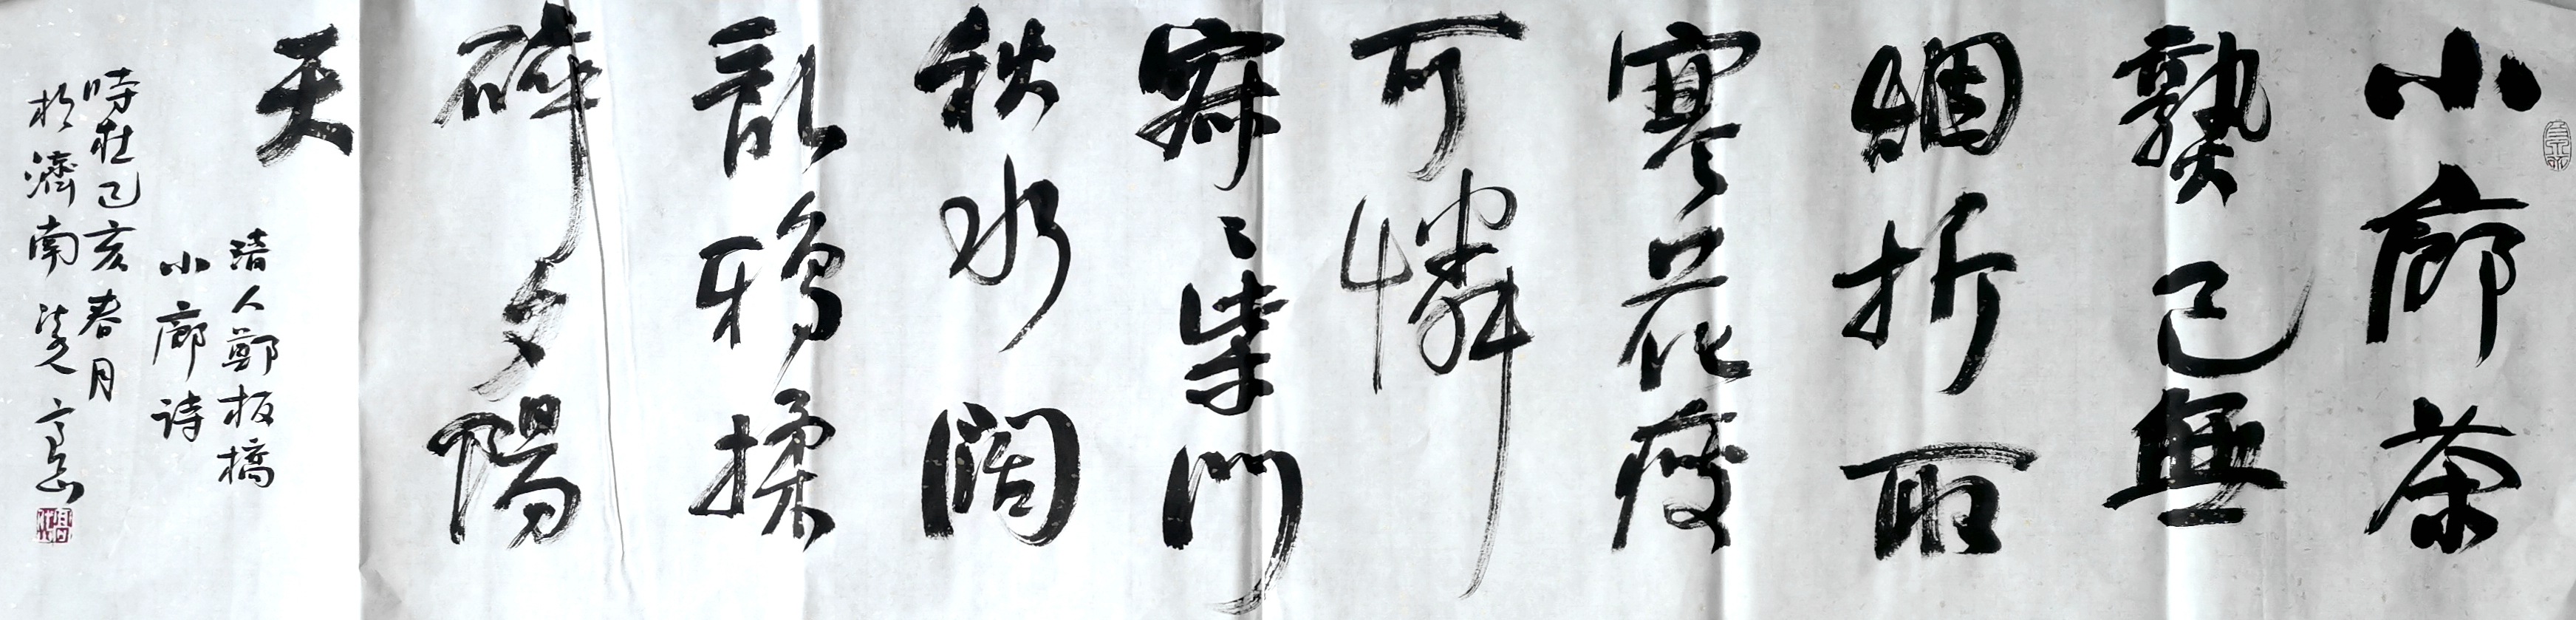 小廊茶
熟已無
烟折取
寒花瘦
可憐
寂〻柴門
秋水闊
乱鴉揉
碎夕陽
天
清人鄭板橋
小廊诗
時在己亥春月
於濟南